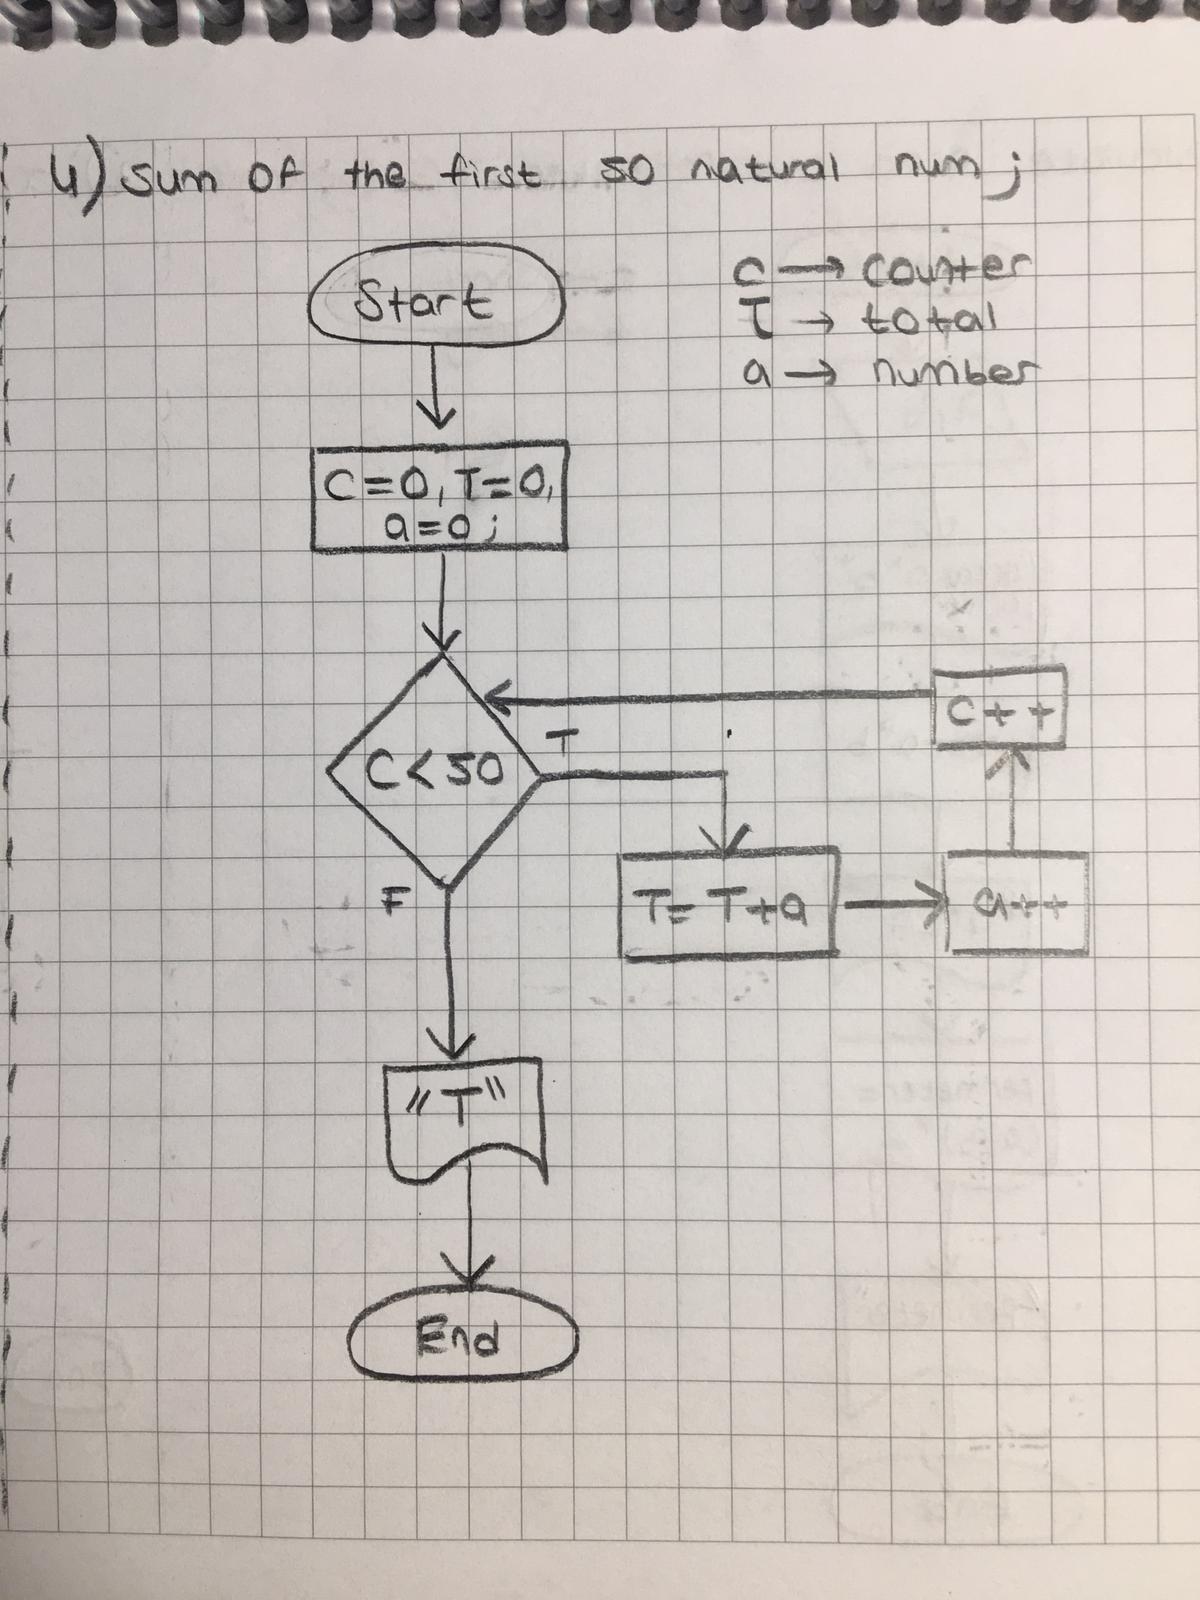 4) sum of the first 50 natural num;
Start
C → counter
T → total
a → number
C=0, T=0,
a=0;
C<50
T
C++
F
T= T+a
a++
"T"
End